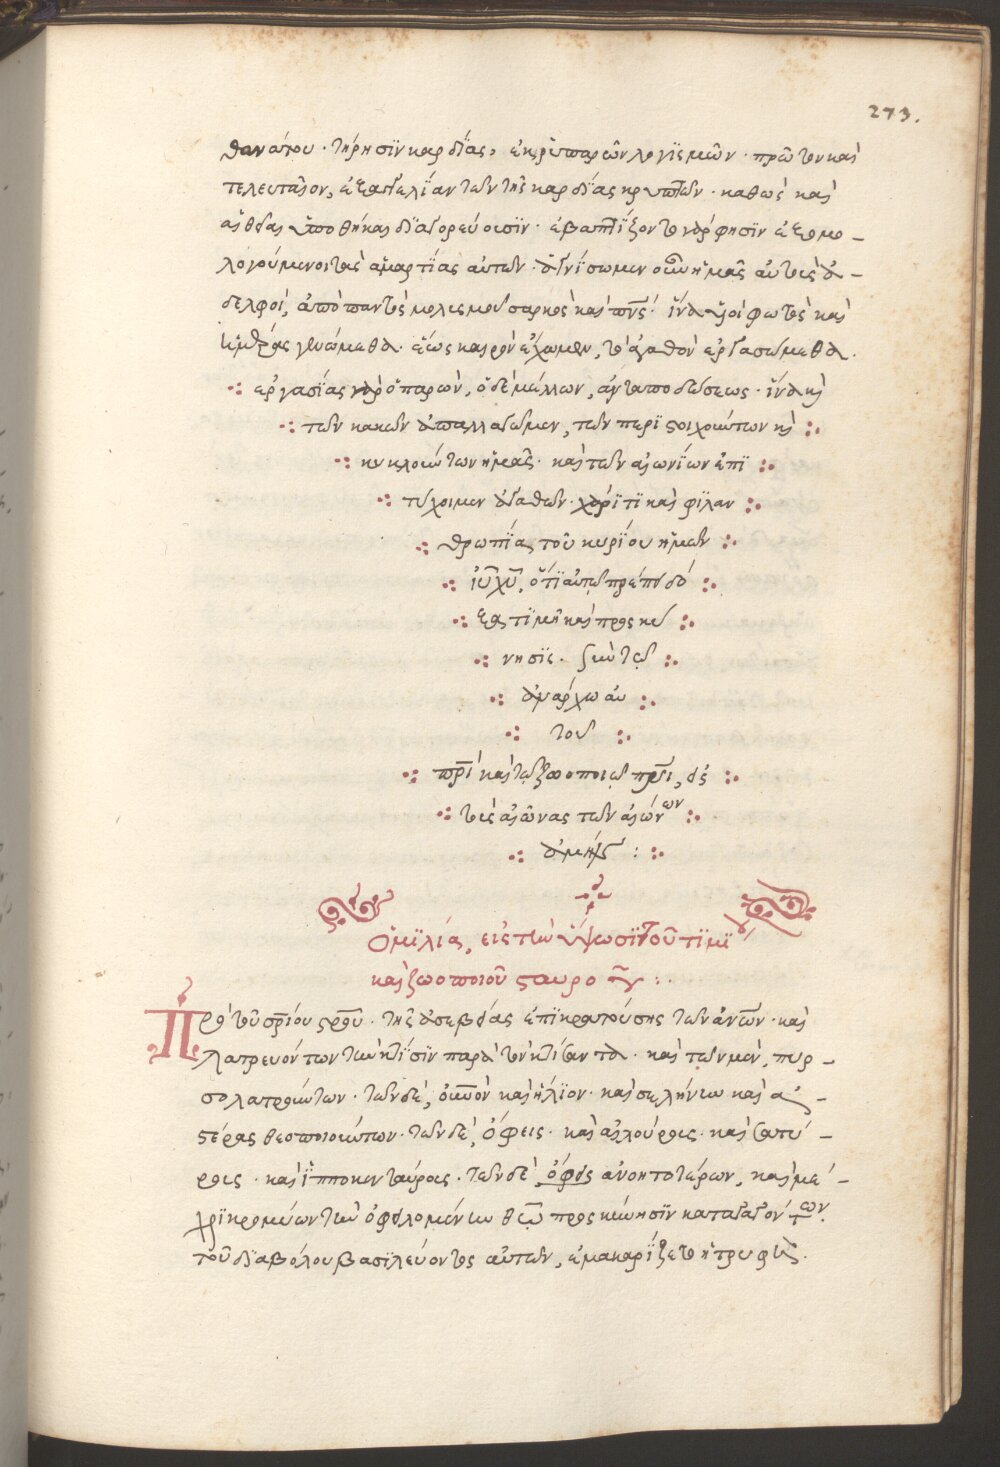 273.
θανάτου · τήρησϊν καρδΐας, ἐκ ῥυπαρῶν λογϊσμῶν · πρῶτον καὶ
τελευταῖον, ἐξαγγελΐαν τῶν τῆς καρδΐας κρυπτῶν · καθὼς καὶ
αἱ θεῖαι ὑποθῆκαι δϊαγορεύουσϊν · ἐβαπτΐζοντο γάρ φησϊν ἐξομο-
λογούμενοι τὰς ἁμαρτΐας αὐτῶν · ἁγνΐσωμεν οὖν ἡμᾶς αὐτοὺς ἀ-
δελφοί, ἀπὸ παντὸς μολυσμοῦ σαρκὸς καὶ πνς · ἵνα υἱοὶ φωτὸς καὶ
ἡμέρας γενώμεθα · ἕως καιρὸν ἔχωμεν, τὸ ἀγαθὸν ἐργασώμεθα ·
ἐργασΐας γὰρ ὁ παρὼν, ὁ δὲ μέλλων, ἀνταποδώσεως · ἵνα κὶ
τῶν κακῶν ἀπαλλαγῶμεν, τῶν περϊστοιχούντων κὶ
κυκλούντων ἡμᾶς · καὶ τῶν αἰωνΐων ἐπϊ
τύχοιμεν ἀγαθῶν · χάρϊτϊ καὶ φϊλαν
θρωπΐας τοῦ κυρΐου ἡμῶν
ἰυ χυ, ὅτϊ αὐτῷ πρέπει δό
ξα, τϊμὴ καὶ προσκύ
νησϊς · σὺν τῷ
ἀνάρχω αὐ
τοῦ
πρὶ καὶ τῷ ζωοποιῷ πνι, εἰς
τοὺς αἰῶνας τῶν αἰώνων
ἀμήν :
Ὁμϊλία, εἰς τὴν ὕψωσϊν τοῦ τϊμΐ
καὶ ζωοποιοῦ σταυροῦ :·
Πρὸ τοῦ σριου σρου · τῆς ἀσεβείας ἐπϊκρατούσης τῶν ανων · καὶ
λατρευόντων τὴν κτΐσϊν παρὰ τὸν κτίσαντα · καὶ τῶν μὲν, πυρ-
σολατρούντων · τῶν δὲ, οὐνον καὶ ἥλϊον · καὶ σελήνην καὶ ἀ-
στέρας θεοποιούντων · τῶν δὲ, ὄφεις · καὶ αἰλούρους · καὶ σατύ-
ρους · καὶ ἱπποκενταύρους · τῶν δὲ, ὄφεις ἀνοητοτέρων, καὶ μέ-
χρϊ κρομύων τὴν ὀφειλομένην θεῷ προσκύνησϊν καταγαγόντων ·
τοῦ δϊαβόλου βασϊλεύοντος αὐτῶν, ἐμακαρΐζετο ἡ τρυφή ·